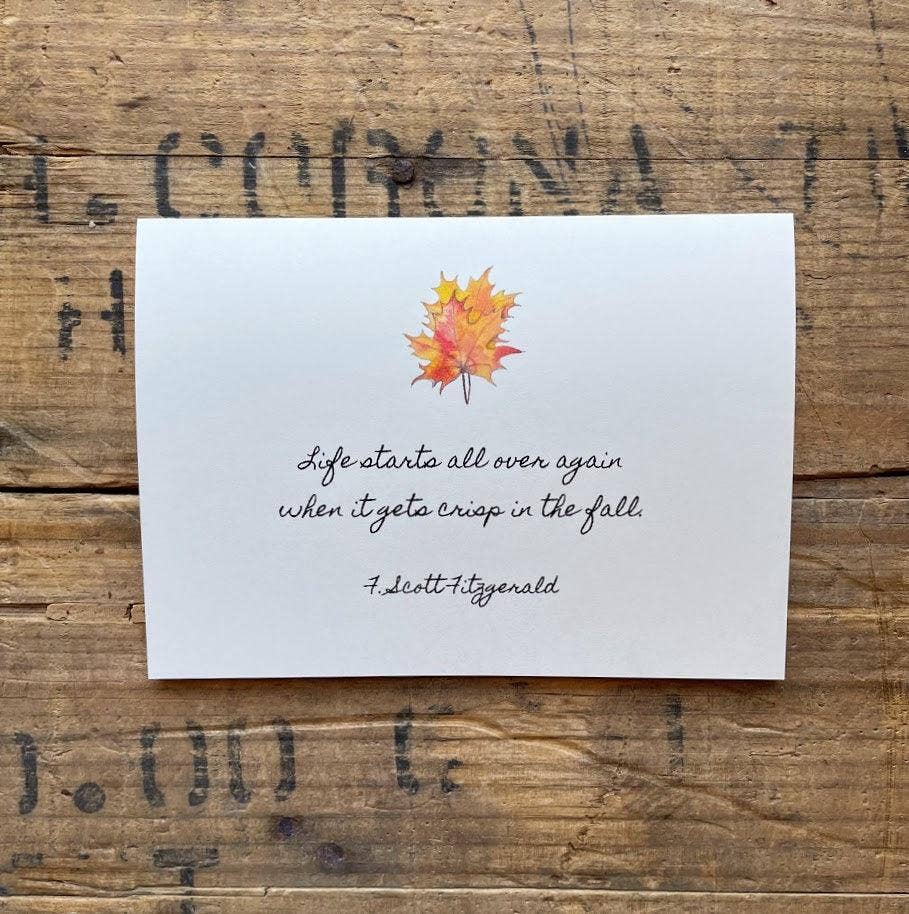 CORONA
Life starts all over again
when it gets crisp in the fall.
F. Scott Fitzgerald